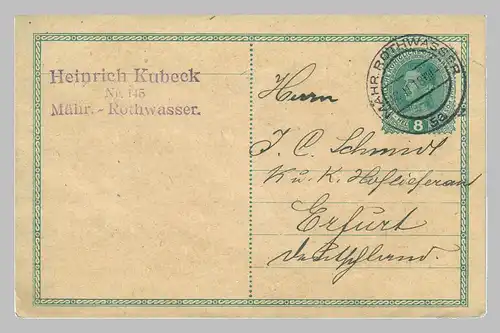 Heinrich Kubeck
Nr. 145
Mähr. - Rothwasser.
MÄHR. ROTHWASSER
8
Herrn
J. C. Schmidt
K. u. K. Hoflieferan
Erfurt
Deutschland.